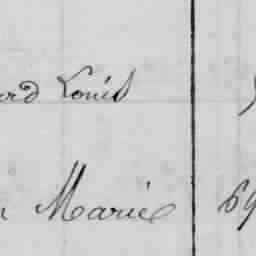 ard Louis
Marie 69